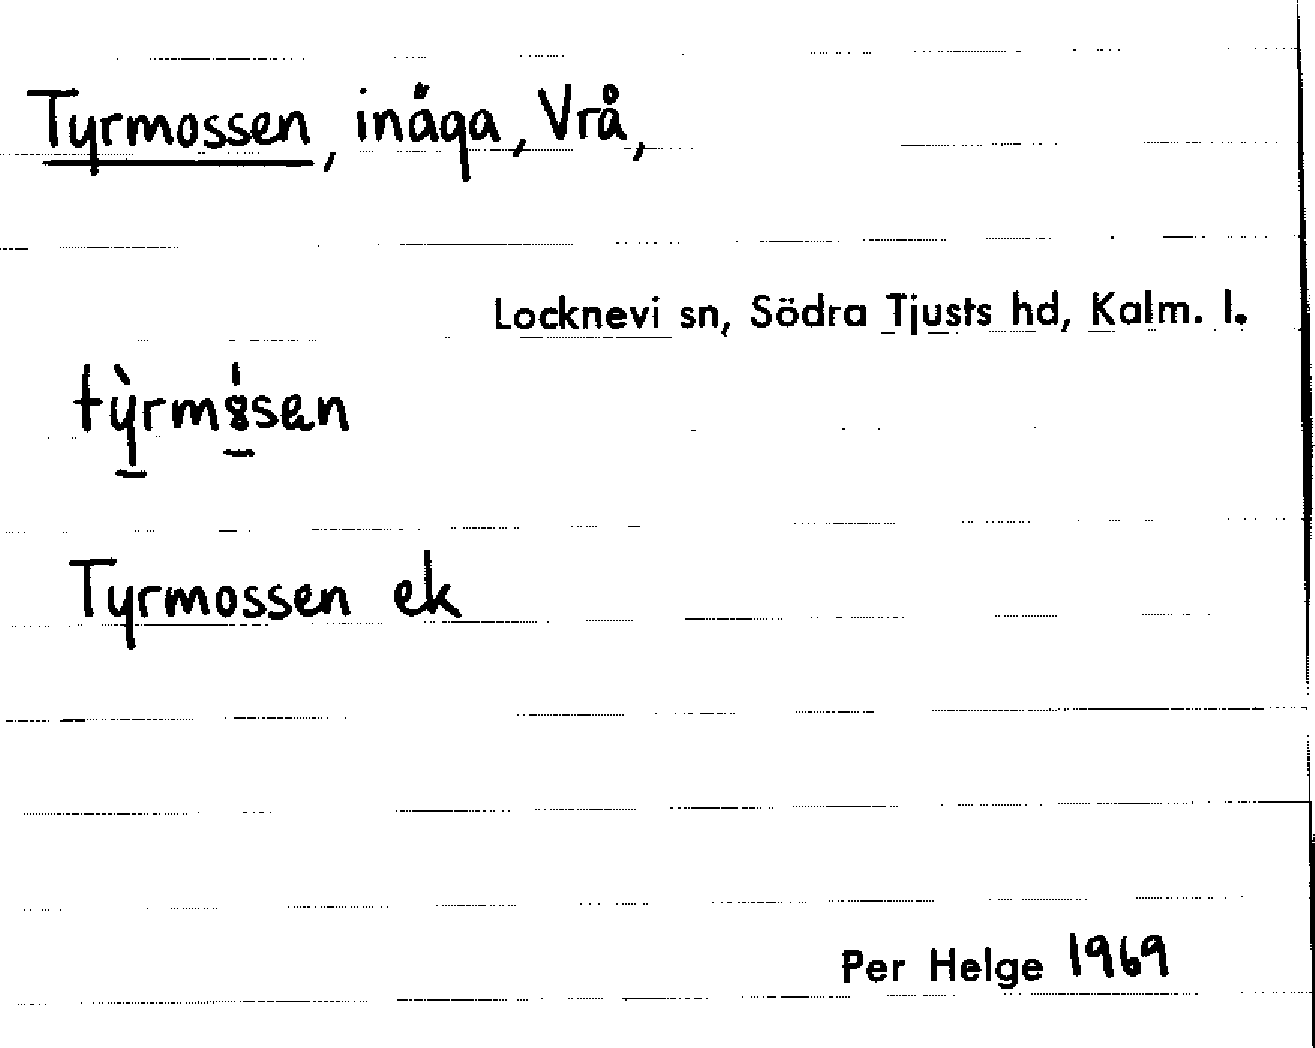 Tyrmossen, inäga, Vrå,
Locknevi sn, Södra Tjusts hd, Kalm. l.
Tyrmossen ek
Per Helge 1969